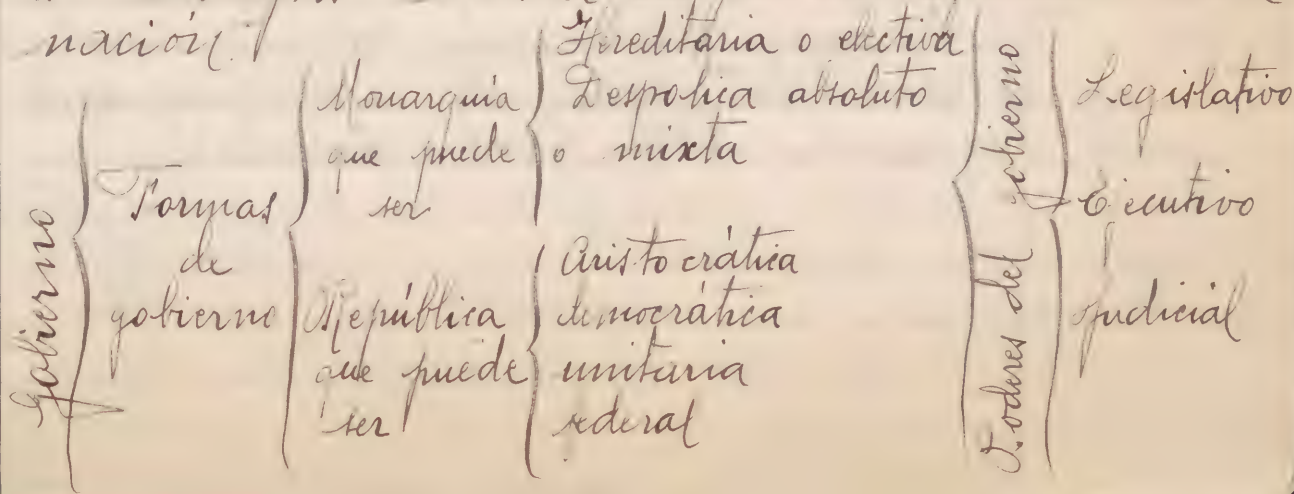 nación.
Gobierno
Formas
de
gobierno
Monarquía
que puede
ser
Hereditaria o electiva
Despotica absoluto
o mixta
República
que puede
ser
Aristocrática
democrática
unitaria
federal
Poderes del gobierno
Legislativo
Ejecutivo
Judicial